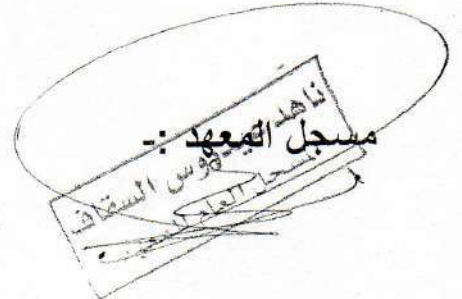 مسجل المعهد :-
ناهد عيدروس السقاف
مسجل العام للمعهد